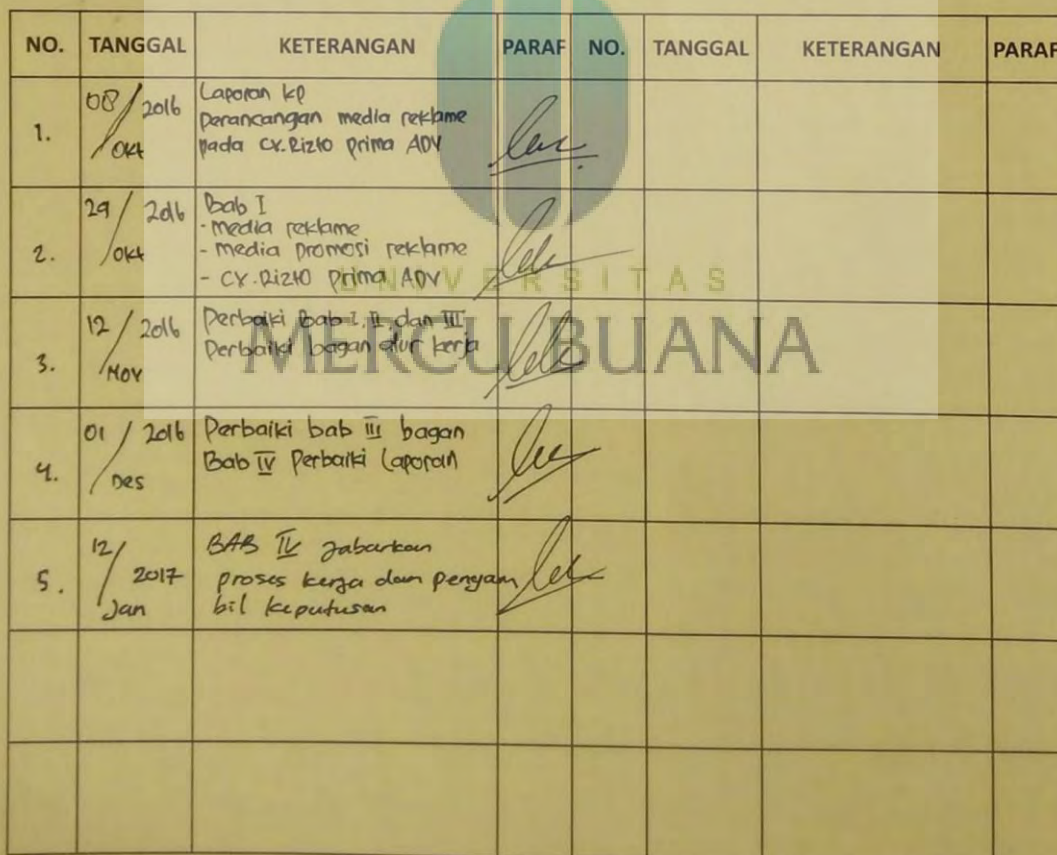 NO. TANGGAL KETERANGAN PARAF NO. TANGGAL KETERANGAN PARAF
1. 08/Okt 2016
Laporan kp
Perancangan media reklame
pada CV.Rizto prima ADV
2. 29/Okt 2016
Bab I
- media reklame
- media promosi reklame
- CV.Rizto Prima ADV
3. 12/Nov 2016
Perbaiki Bab I, II, dan III
Perbaiki bagan alur kerja
4. 01/Des 2016
Perbaiki bab III bagan
Bab IV Perbaiki Laporan
5. 12/Jan 2017
BAB IV Jabarkan
proses kerja dan pengam
bil keputusan
UNIVERSITAS
MERCU BUANA